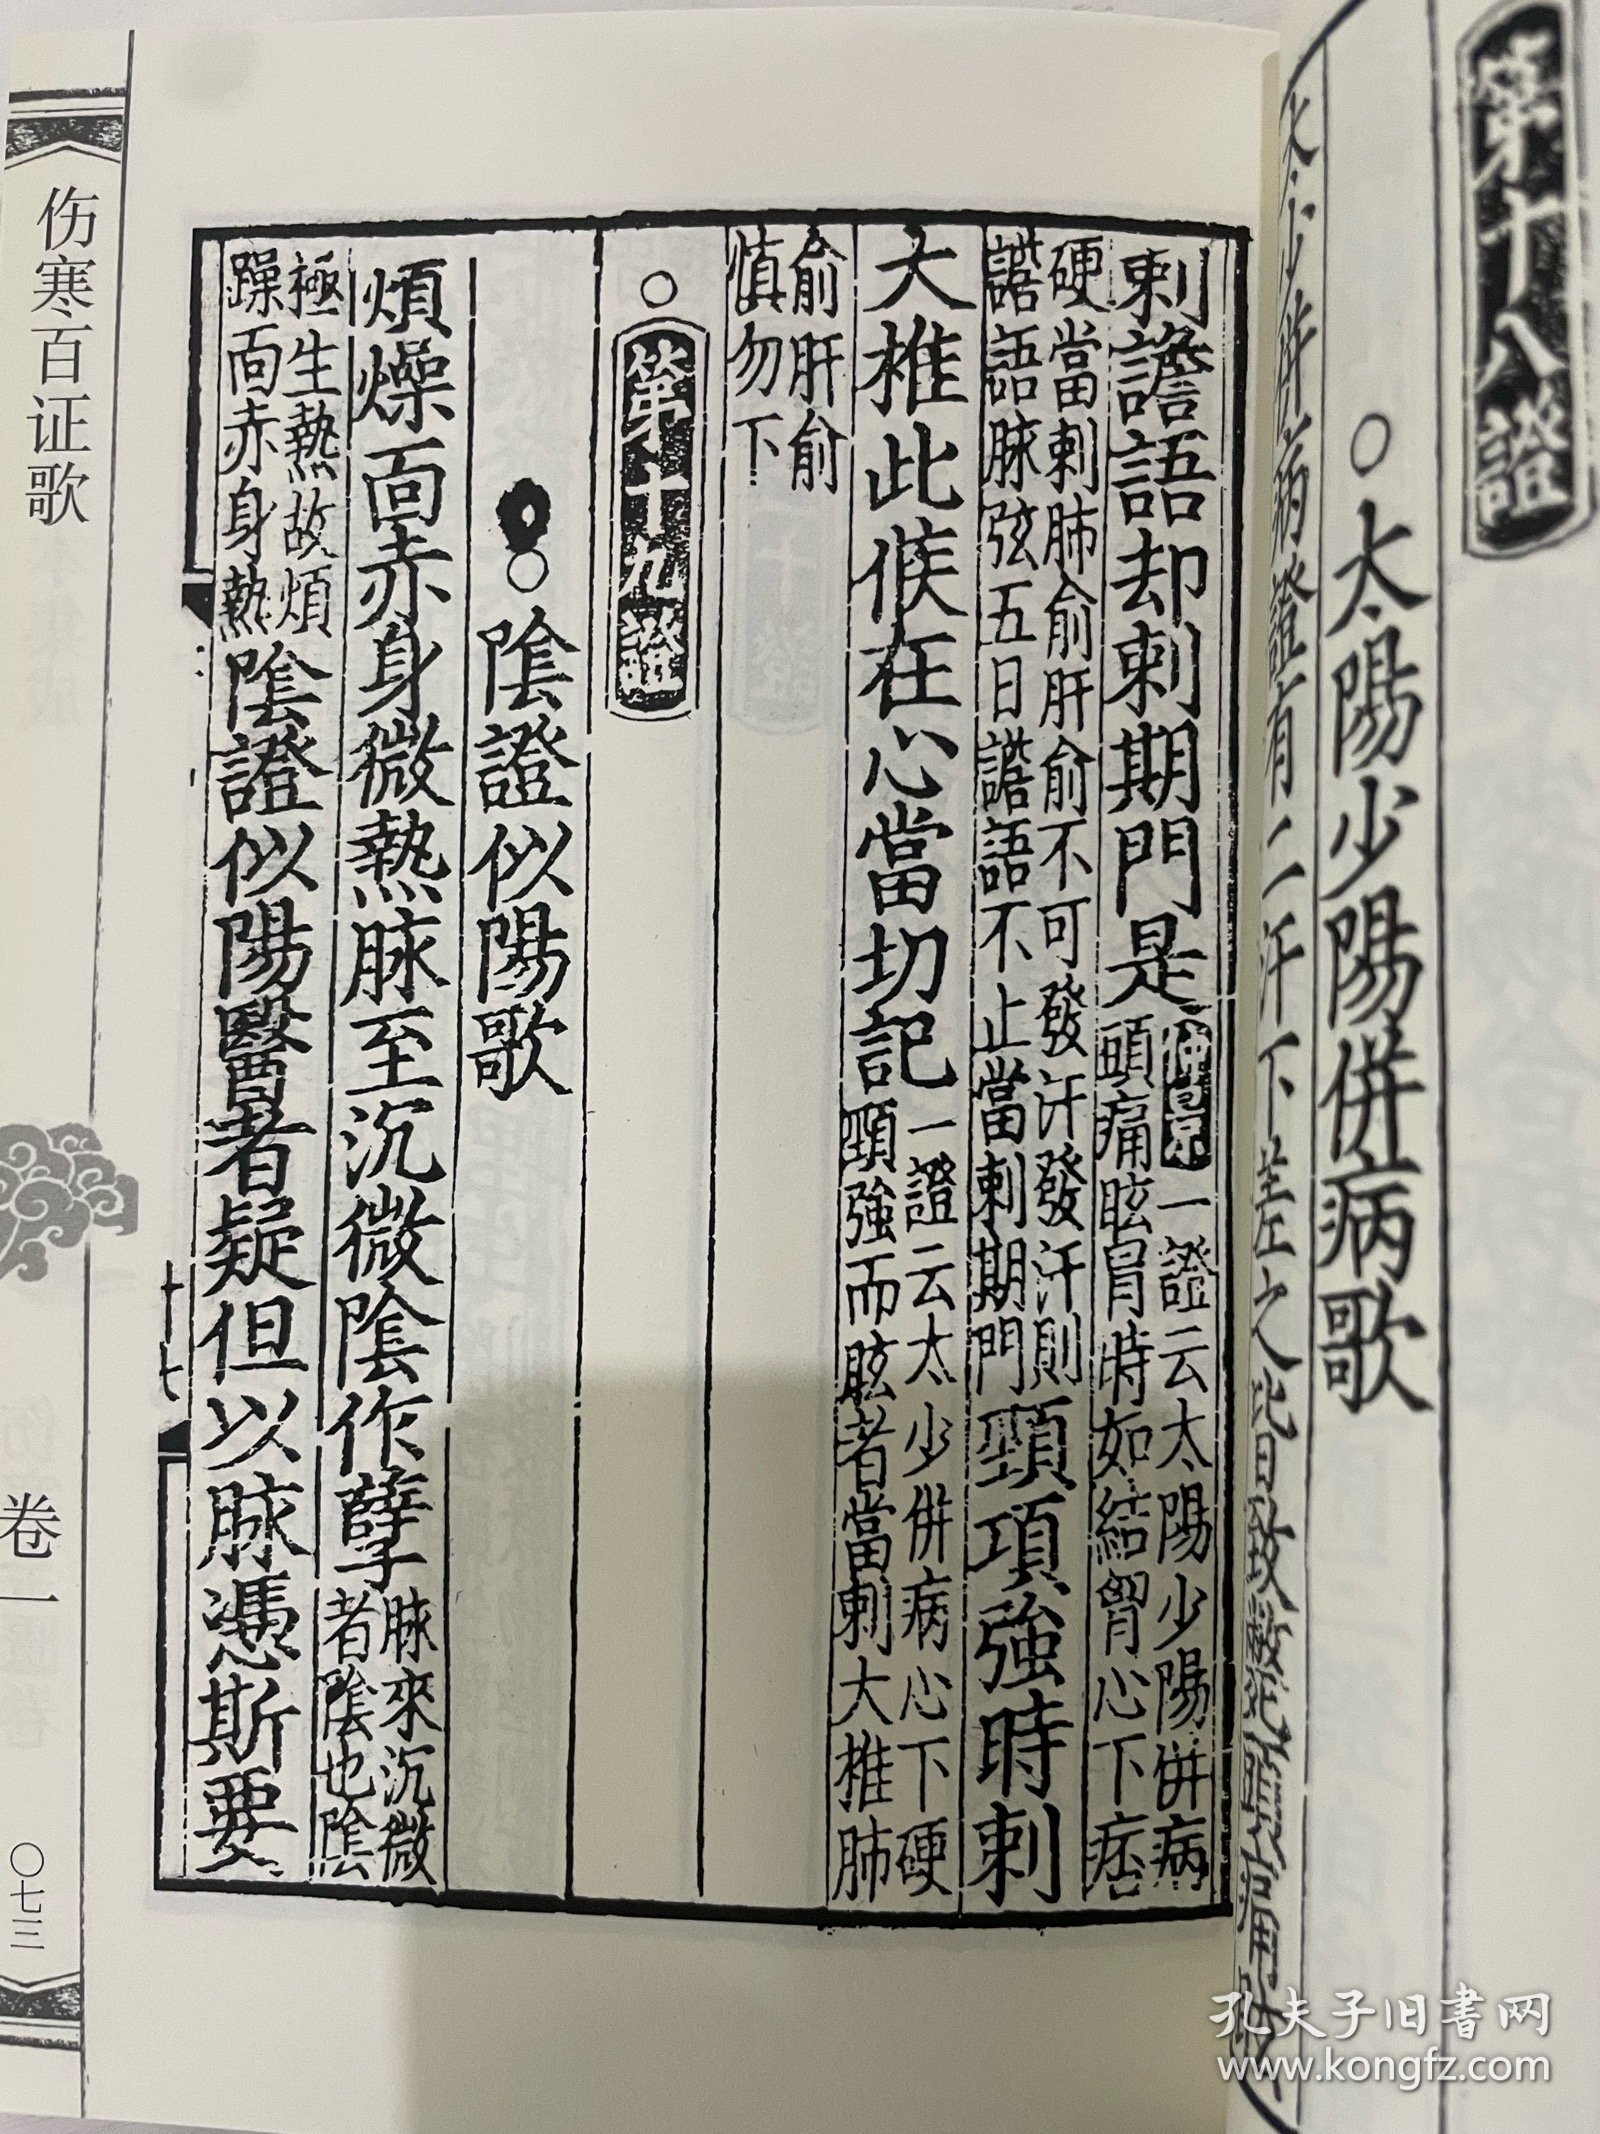 第十八證
○太陽少陽併病歌
太少併病證有二汗下差之皆致斃
刺譫語却刺期門是仲景一證云太陽少陽併病
頭痛眩冒時如結胷心下痞
硬當刺肺俞肝俞不可發汗發汗則
譫語脉弦五日譫語不止當刺期門頸項強時刺
大椎此候在心當切記一證云太少併病心下硬
頸強而眩者當刺大椎肺
俞肝俞
慎勿下
○第十九證
○陰證似陽歌
煩燥面赤身微熱脉至沉微陰作孽脉來沉微
者陰也陰
極生熱故煩
躁面赤身熱陰證似陽醫者疑但以脉憑斯要
十七
伤寒百证歌
卷一
〇七三
孔夫子旧书网
www.kongfz.com